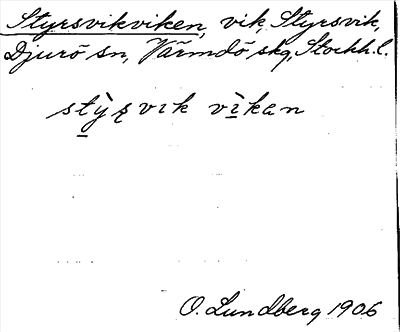 Styrsvikviken, vik, Styrsvik,
Djurö sn, Värmdö skg, Stockh. l.
stỳʂvik vìkan
O. Lundberg 1906